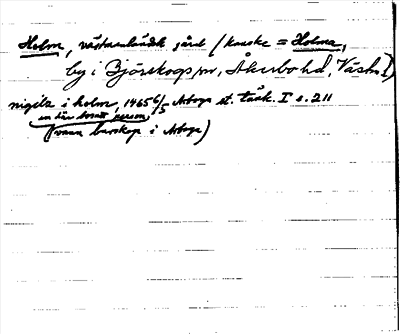 Holm, västmanländsk gård (kanske = Holma,
by i Björskogs sn, Åkerbo hd, Västm.)
nigels i holm, 1465 6/5 Arboga st. tänk. I s. 211
en här bosatt person
(vann burskap i Arboga)